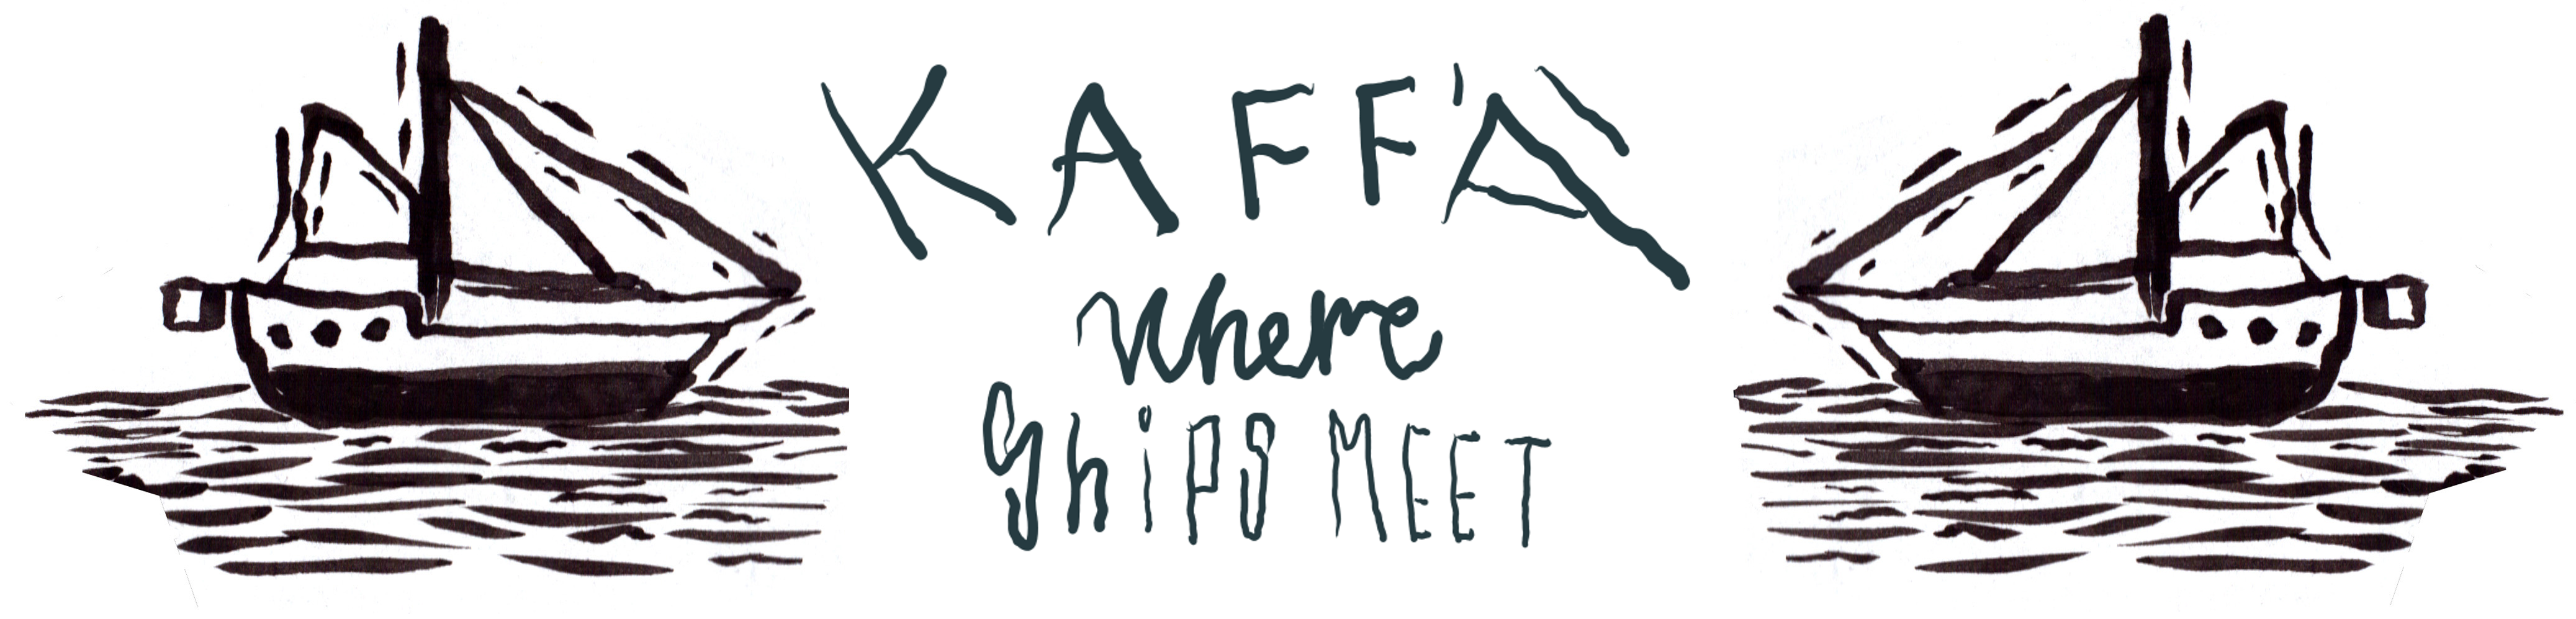 KAFF'A
where
ShiPS MEET